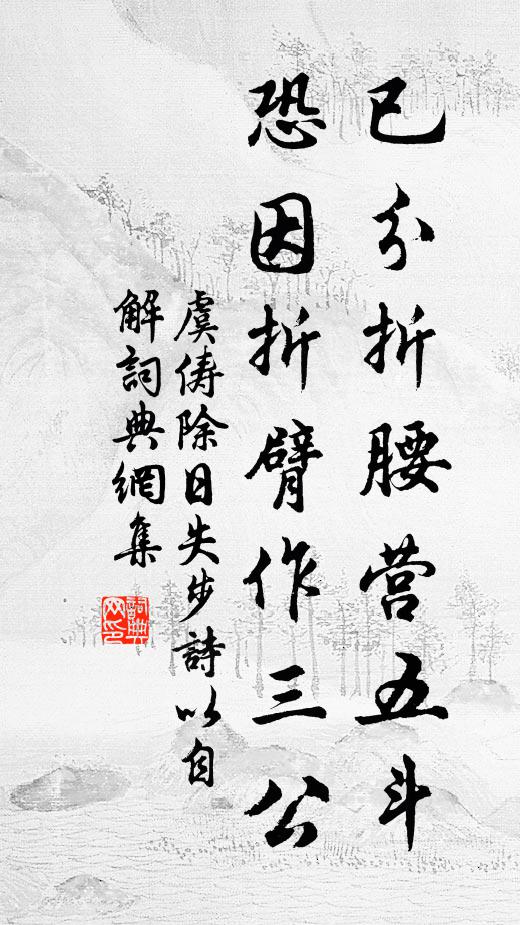 已分折腰营五斗
恐因折臂作三公
虞俦除日失步詩以自
解詞典網集
詞典网印